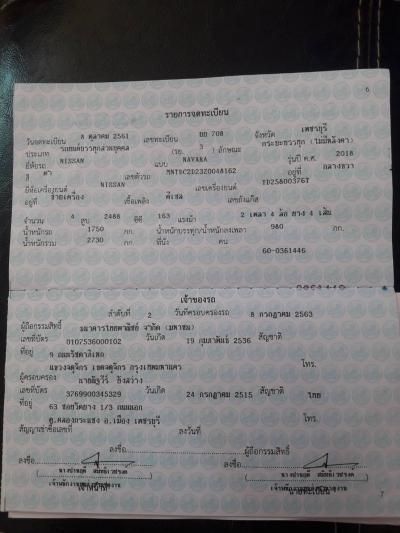 6
รายการจดทะเบียน
วันจดทะเบียน 8 ตุลาคม 2561 เลขทะเบียน บย 708 จังหวัด เพชรบุรี
ประเภท รถยนต์บรรทุกส่วนบุคคล (รย. 3 ) ลักษณะ กระบะบรรทุก (ไม่มีหลังคา)
ยี่ห้อรถ NISSAN แบบ NAVARA รุ่นปี ค.ศ. 2018
สี ดำ เลขตัวรถ MNTBC2D23Z0048162 อยู่ที่ กลางขวา
ยี่ห้อเครื่องยนต์ NISSAN เลขเครื่องยนต์ YD25800376T
อยู่ที่ ขวาเครื่อง เชื้อเพลิง ดีเซล เลขถังแก๊ส
จำนวน 4 สูบ 2488 ซีซี 163 แรงม้า 2 เพลา 4 ล้อ ยาง 4 เส้น
น้ำหนักรถ 1750 กก. น้ำหนักบรรทุก/น้ำหนักลงเพลา 980 กก.
น้ำหนักรวม 2730 กก. ที่นั่ง คน
60-0361446
เจ้าของรถ
ลำดับที่ 2 วันที่ครอบครองรถ 8 กรกฎาคม 2563
ผู้ถือกรรมสิทธิ์ ธนาคารไทยพาณิชย์ จำกัด (มหาชน)
เลขที่บัตร 0107536000102 วันเกิด 19 กุมภาพันธ์ 2536 สัญชาติ
ที่อยู่ 9 ถนนรัชดาภิเษก
แขวงจตุจักร เขตจตุจักร กรุงเทพมหานคร โทร.
ผู้ครอบครอง
เลขที่บัตร 3769900345329 วันเกิด 24 กรกฎาคม 2515 สัญชาติ ไทย
ที่อยู่ 63 ซอยวัดยาง 1/3
ต.คลองกระแชง อ.เมือง เพชรบุรี โทร.
สัญญาเช่าซื้อเลขที่ ลงวันที่
ลงชื่อ ผู้ถือกรรมสิทธิ์
ลงชื่อ ลงชื่อ
เจ้าหน้าที่ นายทะเบียน
7